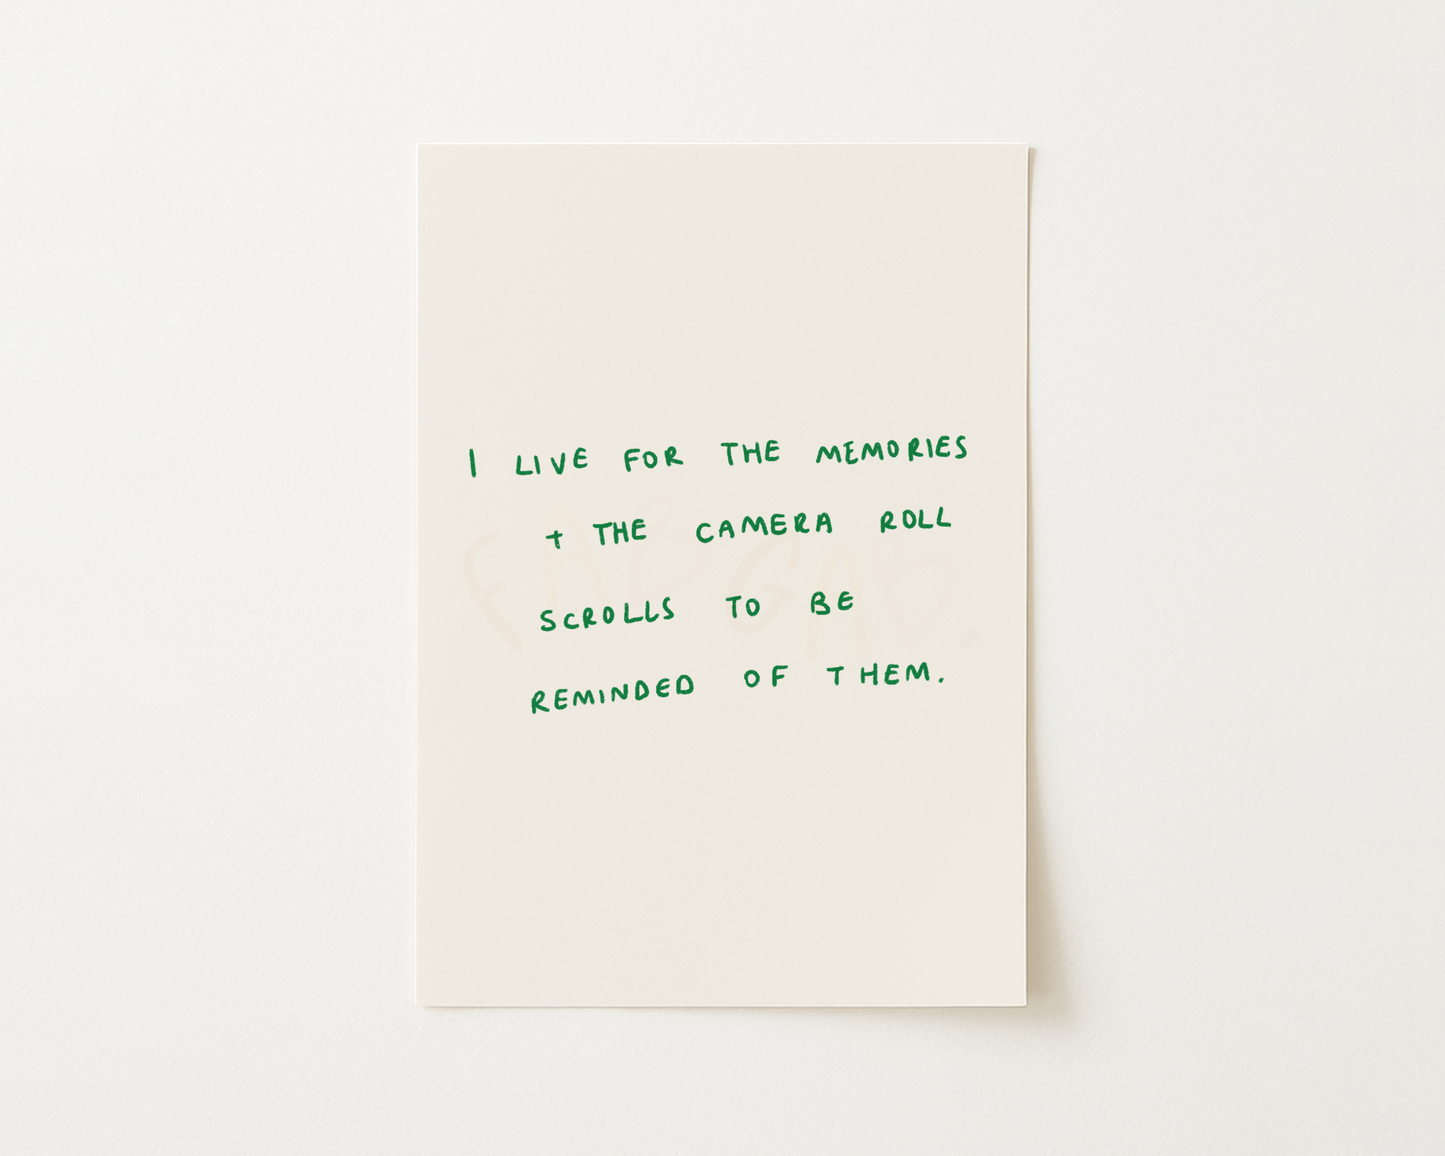 I LIVE FOR THE MEMORIES
+ THE CAMERA ROLL
SCROLLS TO BE
REMINDED OF THEM.